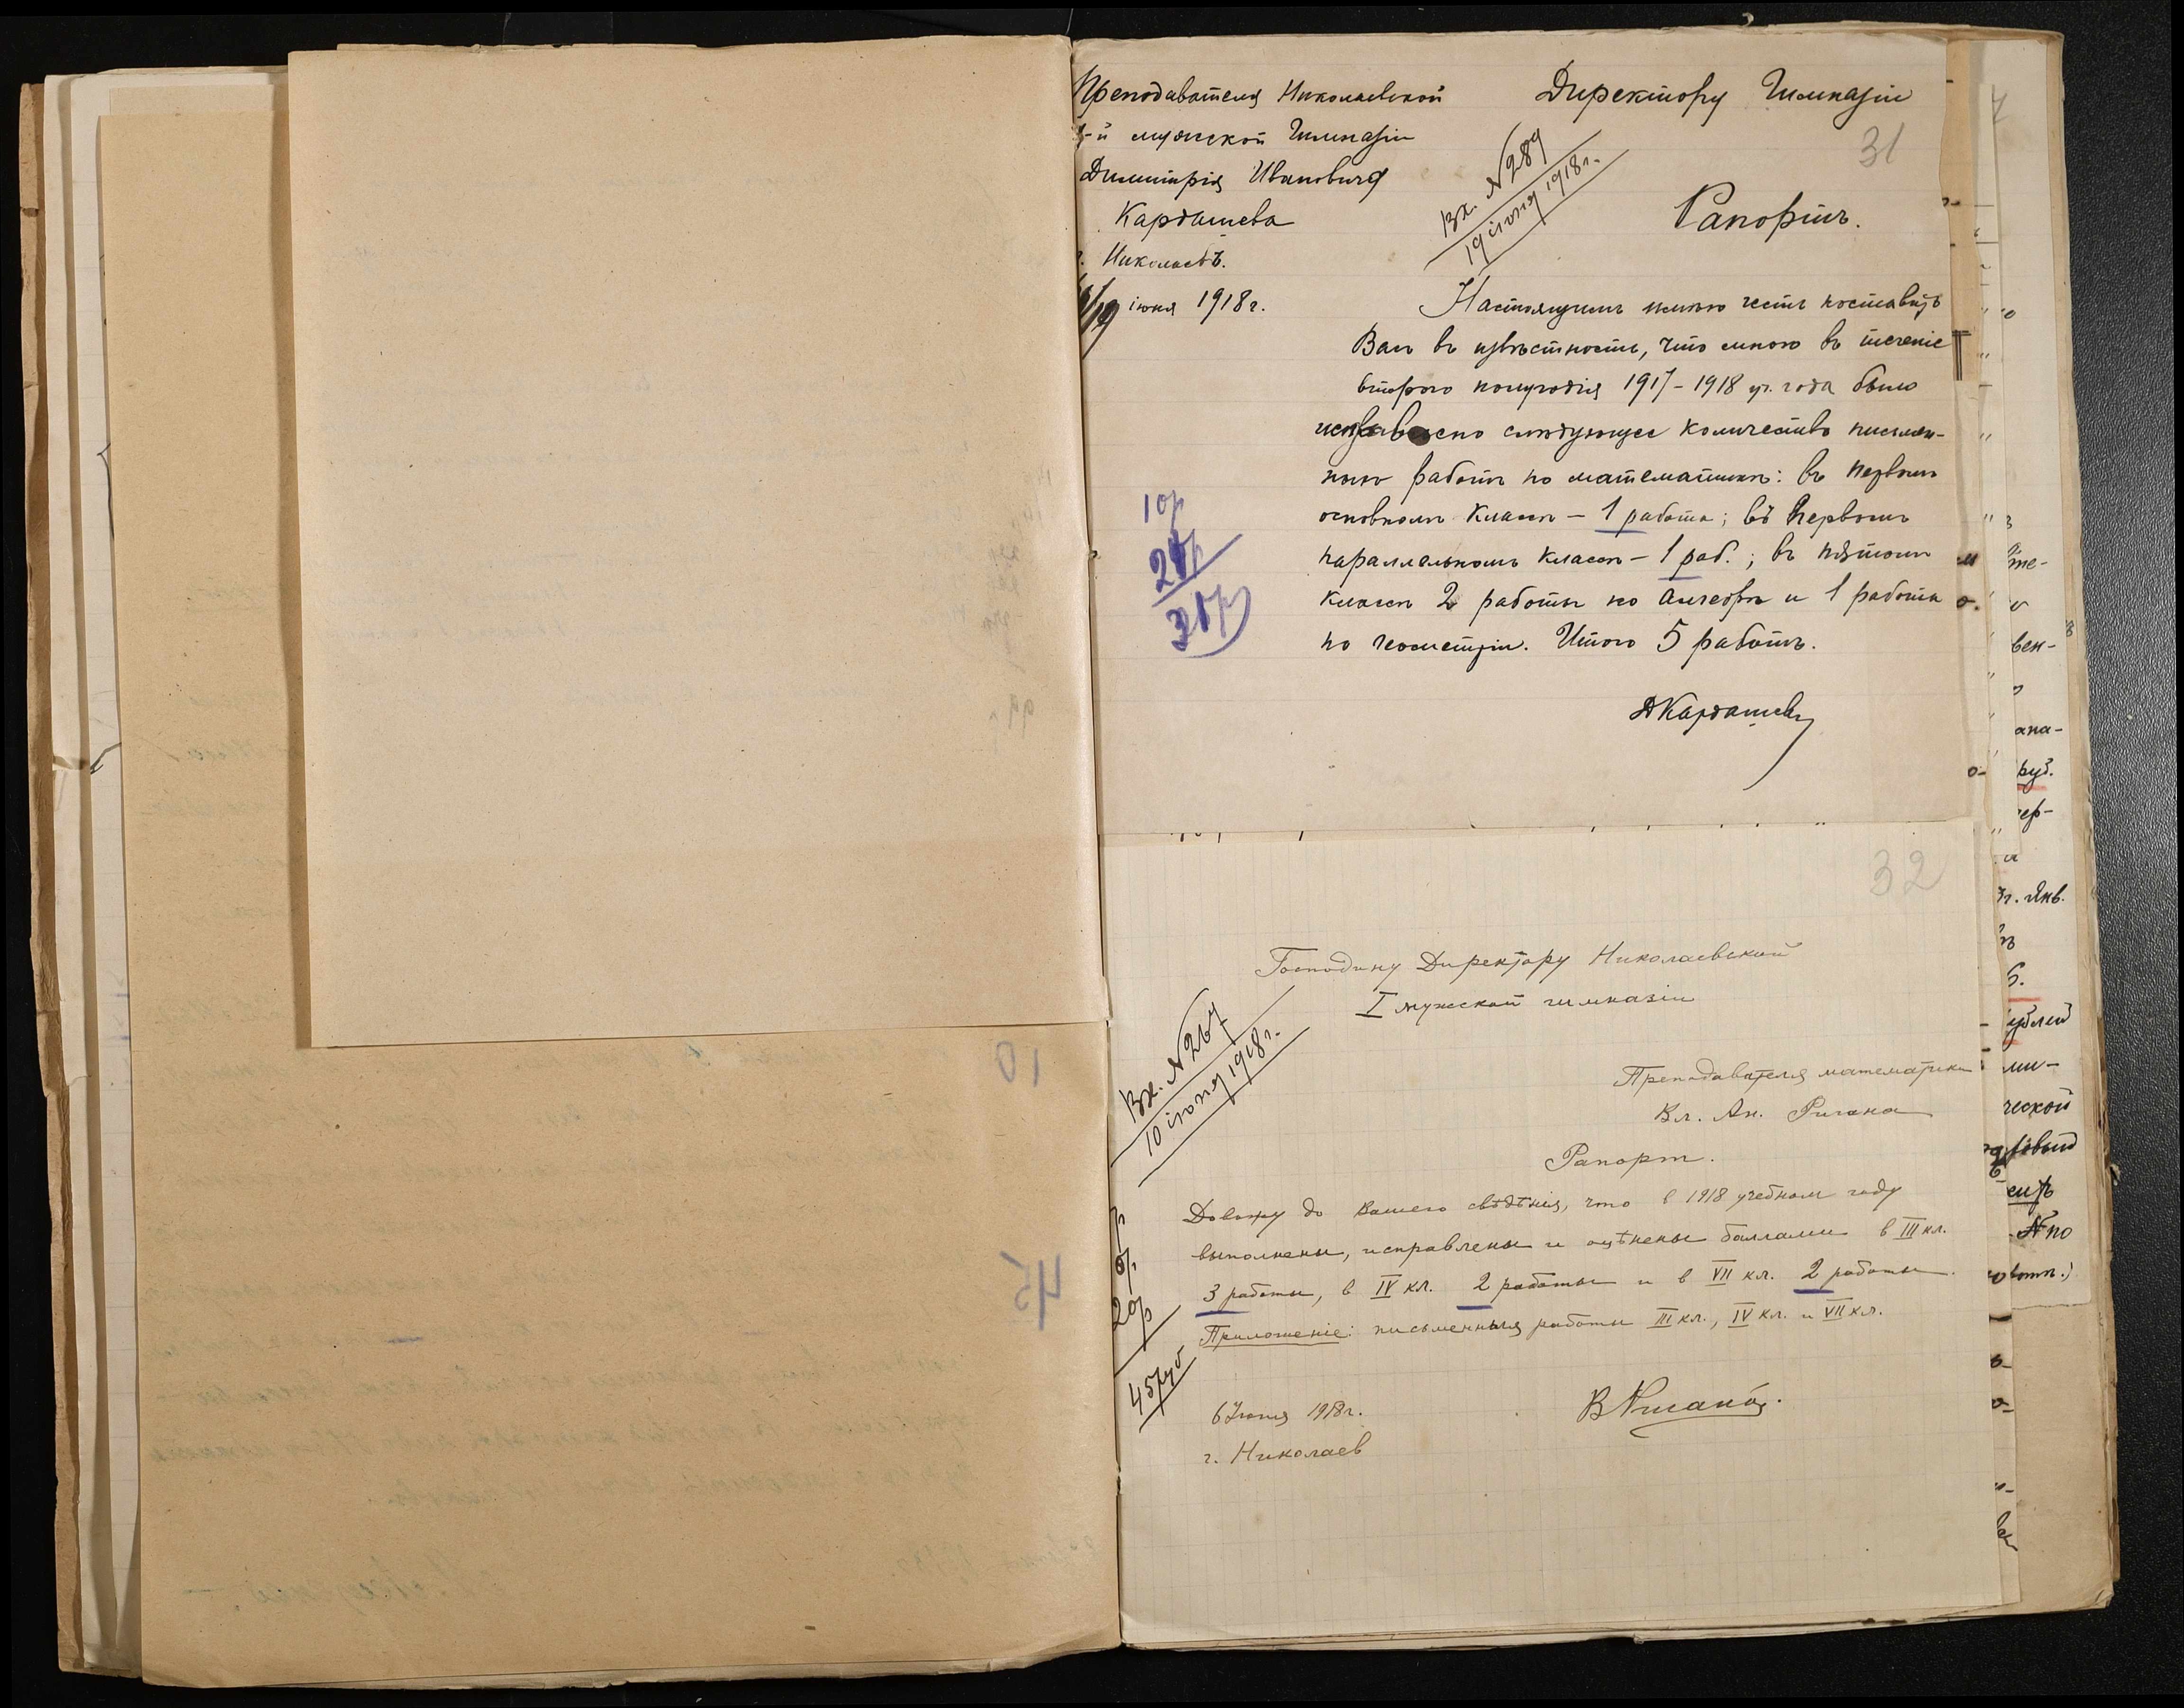 Преподавателя Николаевской
й мужской Гимназіи
Димитрія Ивановича
Кардашева
г. Николаевъ.
6/19 іюня 1918 г.
Директору Гимназіи
31
Вх. №289
19 іюня 1918 г.
Рапортъ.
Настоящимъ имѣю честь поставить
Васъ въ извѣстность, что мною въ теченіе
второго полугодія 1917-1918 уч. года было
исправлено слѣдующее количество письмен-
ныхъ работъ по математикѣ: въ первомъ
основномъ классѣ - 1 работа; въ первомъ
параллельномъ классѣ - 1 раб.; въ пятомъ
классѣ 2 работы по алгебрѣ и 1 работа
по геометріи. Итого 5 работъ.
10р
ДКардашевъ
32
Господину Директору Николаевской
I мужской гимназіи
Вх. №267
10 іюня 1918 г.
Преподавателя математики
Вл. Ан.
Рапорт.
Довожу до Вашего свѣдѣнія, что в 1918 учебном году
выполнены, исправлены и оцѣнены баллами в III кл.
3 работы, в IV кл. 2 работы и в VII кл. 2 работы.
Приложеніе: письменныя работы III кл., IV кл. и VII кл.
20р
45руб
6 Іюня 1918 г.
г. Николаев